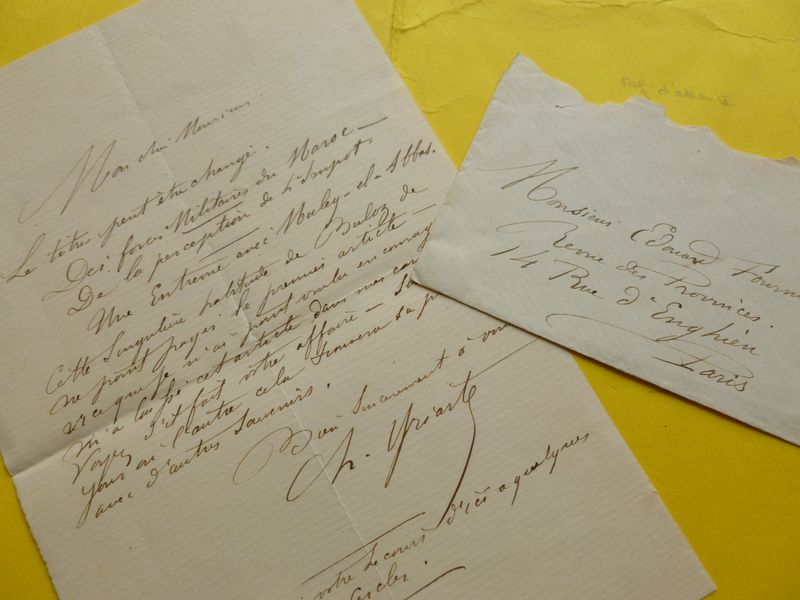 Mon cher Monsieur
Le titre peut être changé.
Des forces Militaires du Maroc –
De la perception de L'Impot.
Une Entrevue avec Muley-el-Abbas.
Cette Singulière habitude de Buloz de
ne point payer le premier article –
m'a laissé cet article dans mes
Voyez s'il fait votre affaire –
jour où l'autre cela trouvera sa
avec d'autres Souvenirs.
Bien Sincèrement à
Ch. Yriarte
votre Secours d'ici a quelques
Monsieur Edouard Fourni
Revue des Provinces.
14 Rue d'Enghien
Paris